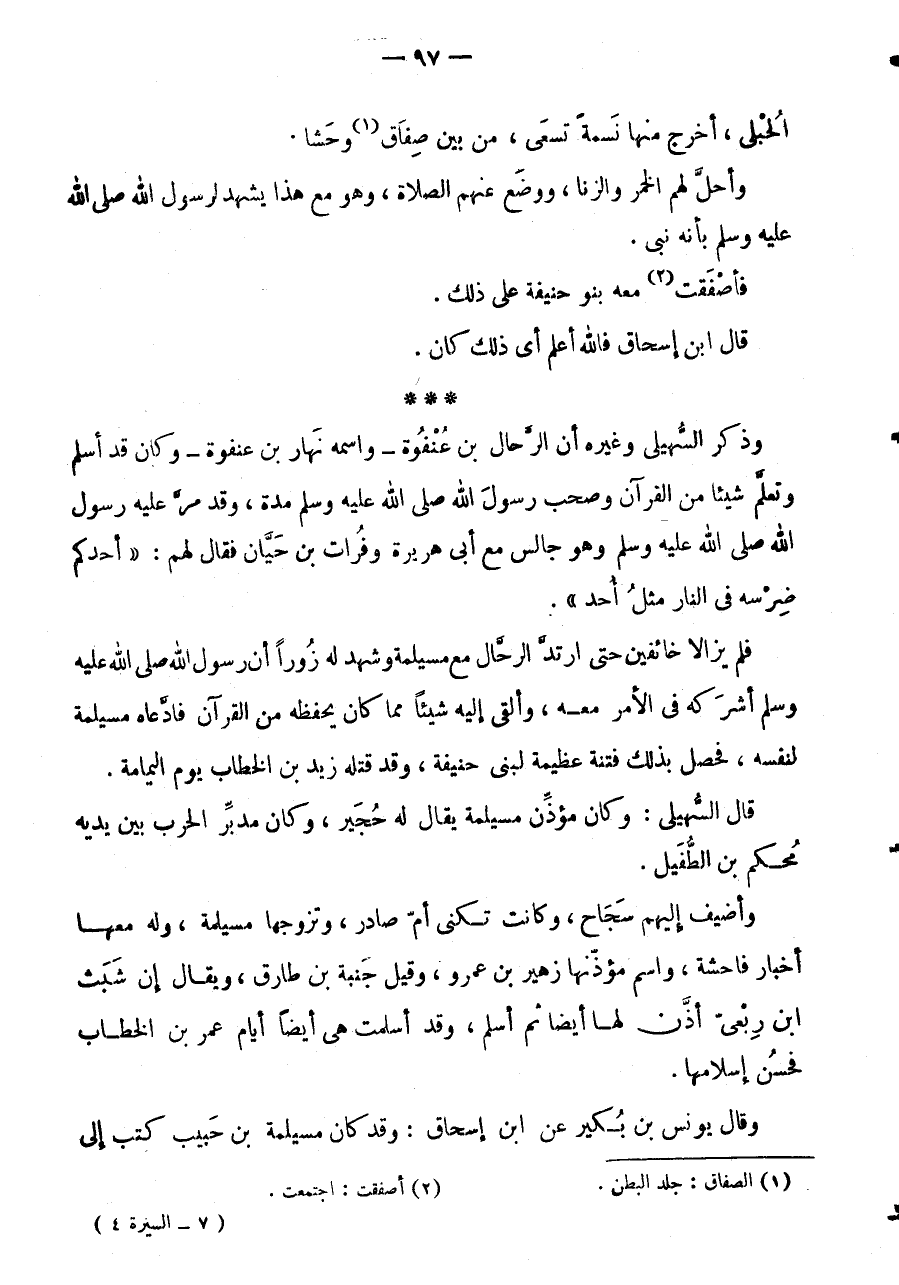 — ٩٧ —
الُحْبْلى ، أخرج منها نَسمةً تسعَى ، من بين صِفَاق(١) وحَشا .
وأحلَّ لهم الخمر والزنا ، ووضَع عنهم الصلاة ، وهو مع هذا يشهد لرسول الله صلى الله
عليه وسلم بأنه نبى .
فأصْفَقت(٢) معه بنو حنيفة على ذلك .
قال ابن إسحاق فالله أعلم أى ذلك كان .
***
وذكر السُّهيلى وغيره أن الرَّحال بن عُنْفُوة ـ واسمه نَهار بن عنفوة ـ وكان قد أسلم
وتعلَّم شيئا من القرآن وصحب رسولَ الله صلى الله عليه وسلم مدة ، وقد مرَّ عليه رسول
الله صلى الله عليه وسلم وهو جالس مع أبى هريرة وفُرات بن حَيَّان فقال لهم : « أحدكم
ضِرْسه فى النار مثلُ أُحد » .
فلم يزالا خائفين حتى ارتدَّ الرحَّال مع مسيلمة وشهد له زُوراً أن رسول الله صلى الله عليه
وسلم أشرَكه فى الأمر معـه ، وألقى إليه شيئاً مما كان يحفظه من القرآن فادَّعاه مسيلمة
لنفسه ، فحصل بذلك فتنة عظيمة لبنى حنيفة ، وقد قتله زيد بن الخطاب يوم اليمامة .
قال السُّهيلى : وكان مؤذِّن مسيلمة يقال له حُجَير ، وكان مدبِّر الحرب بين يديه
مُحـكم بن الطُّفَيل .
وأضيف إليهم سَجَاح ، وكانت تـكنى أمّ صادر ، وتزوجها مسيلمة ، وله معهـا
أخبار فاحشة ، واسم مؤذّنها زهير بن عمرو ، وقيل جَنبة بن طارق ، ويقـال إن شَبَث
ابن رِبْعىّ أذَّن لهـا أيضا ثم أسلم ، وقد أسلمت هى أيضاً أيام عمر بن الخطـاب
فحسُن إسلامها .
وقال يونس بن بُـكير عن ابن إسحاق : وقد كان مسيلمة بن حَبيب كتب إلى
(١) الصفاق : جلد البطن . (٢) أصفقت : اجتمعت .
( ٧ ـ السيرة ٤ )